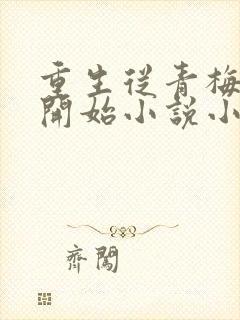 重生從青梅
開始小說小
齊闖